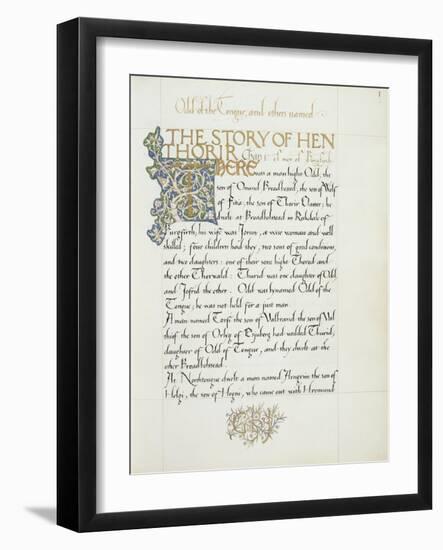 1
Odd of the Tongue, and others named
THE STORY OF HEN
THORIR Chap I of men of Burgfirth
THERE
was a man hight Odd, the
son of Onund Broadbeard, the son of Wolf
of Fitia, the son of Thorir Clatter; he
dwelt at Broadbolstead in Reekdale of
Burgfirth; his wife was Jorunn, a wise woman and well
skilled; four children had they, two sons of good conditions,
and two daughters: one of their sons hight Thorod and
the other Thorwald: Thurid was one daughter of Odd
and Jofrid the other. Odd was bynamed Odd of the
Tongue; he was not held for a just man.
A man named Torfi the son of Valbrand the son of Val
thiof the son of Orlyg of Esjuberg had wedded Thurid,
daughter of Odd of Tongue, and they dwelt at the
other Broadbolstead.
At Northtongue dwelt a man named Arngrim the son of
Helgi, the son of Hogni, who came out with Hromund